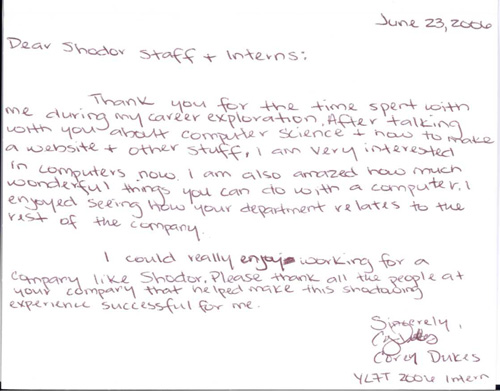 June 23, 2006
Dear Shodor Staff + Interns:
Thank you for the time spent with
me during my career exploration. After talking
with you about computer science + how to make
a website + other stuff, I am very interested
in computers now. I am also amazed how much
wonderful things you can do with a computer. I
enjoyed seeing how your department relates to the
rest of the company.
I could really enjoy working for a
company like Shodor. Please thank all the people at
your company that helped make this shadowing
experience successful for me.
Sincerely,
Corey Dukes
YLFT 2006 Intern